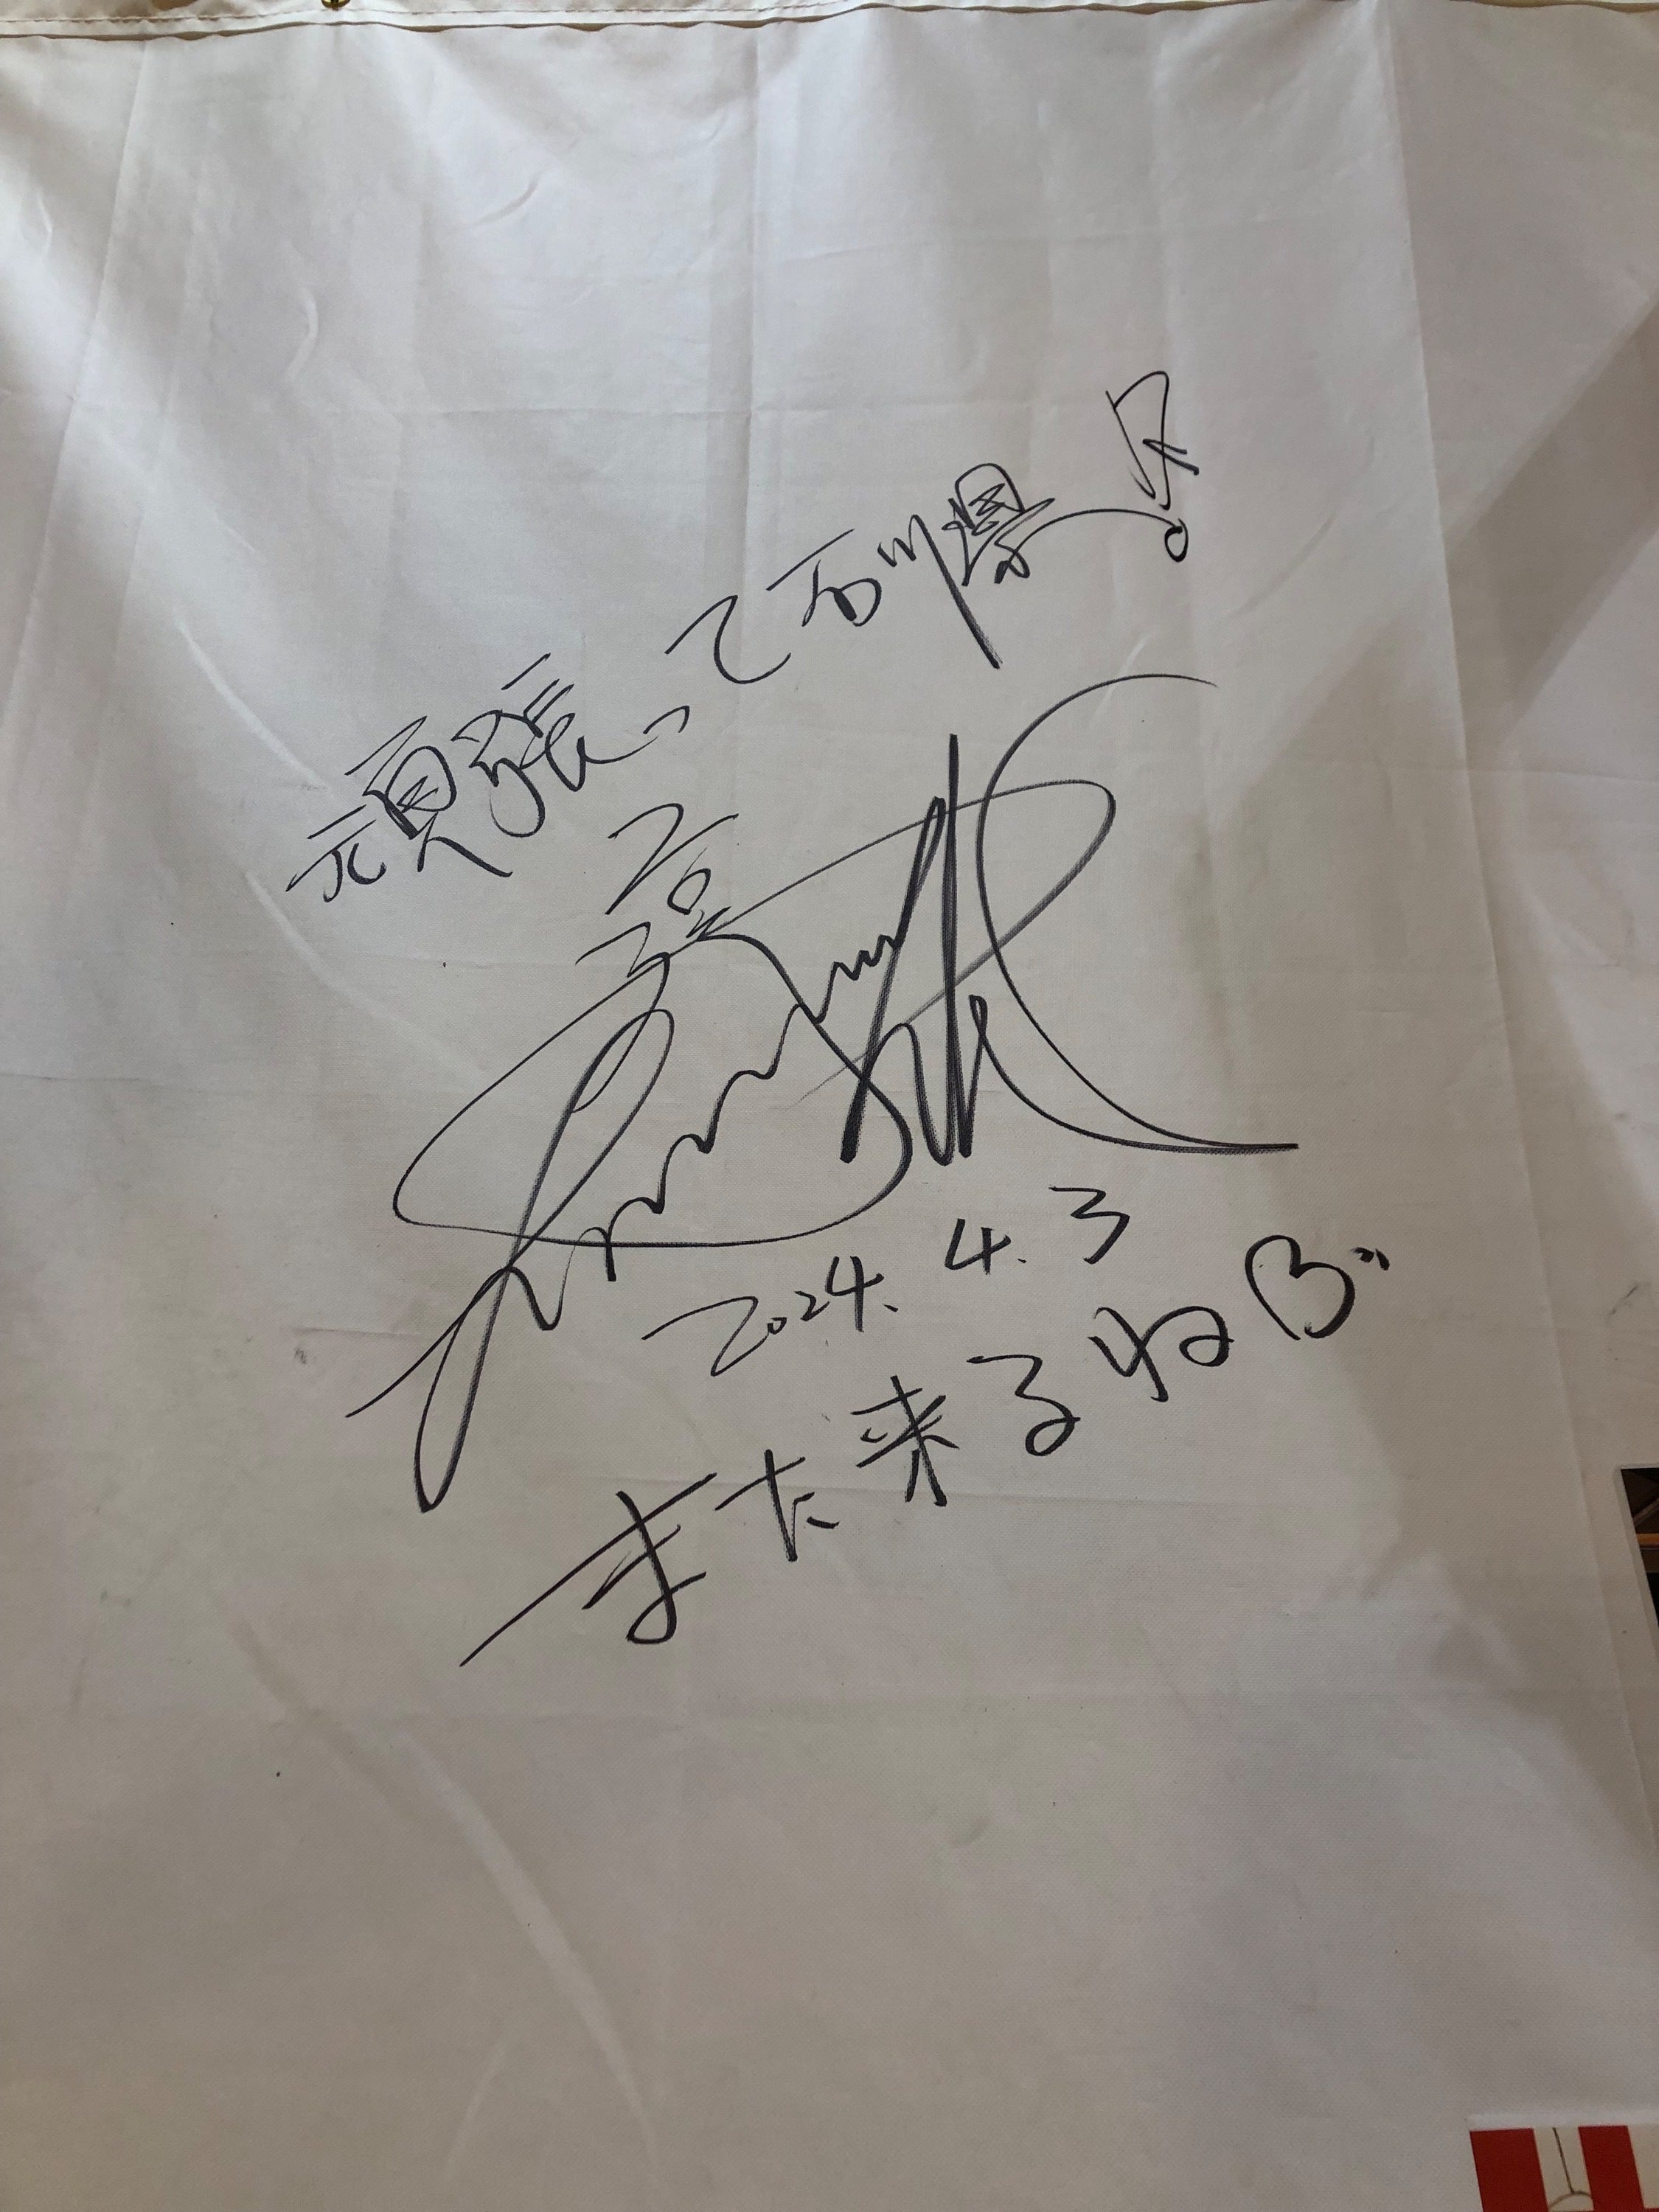 頑張って石川県♪
2024.4.3
また来るね♡